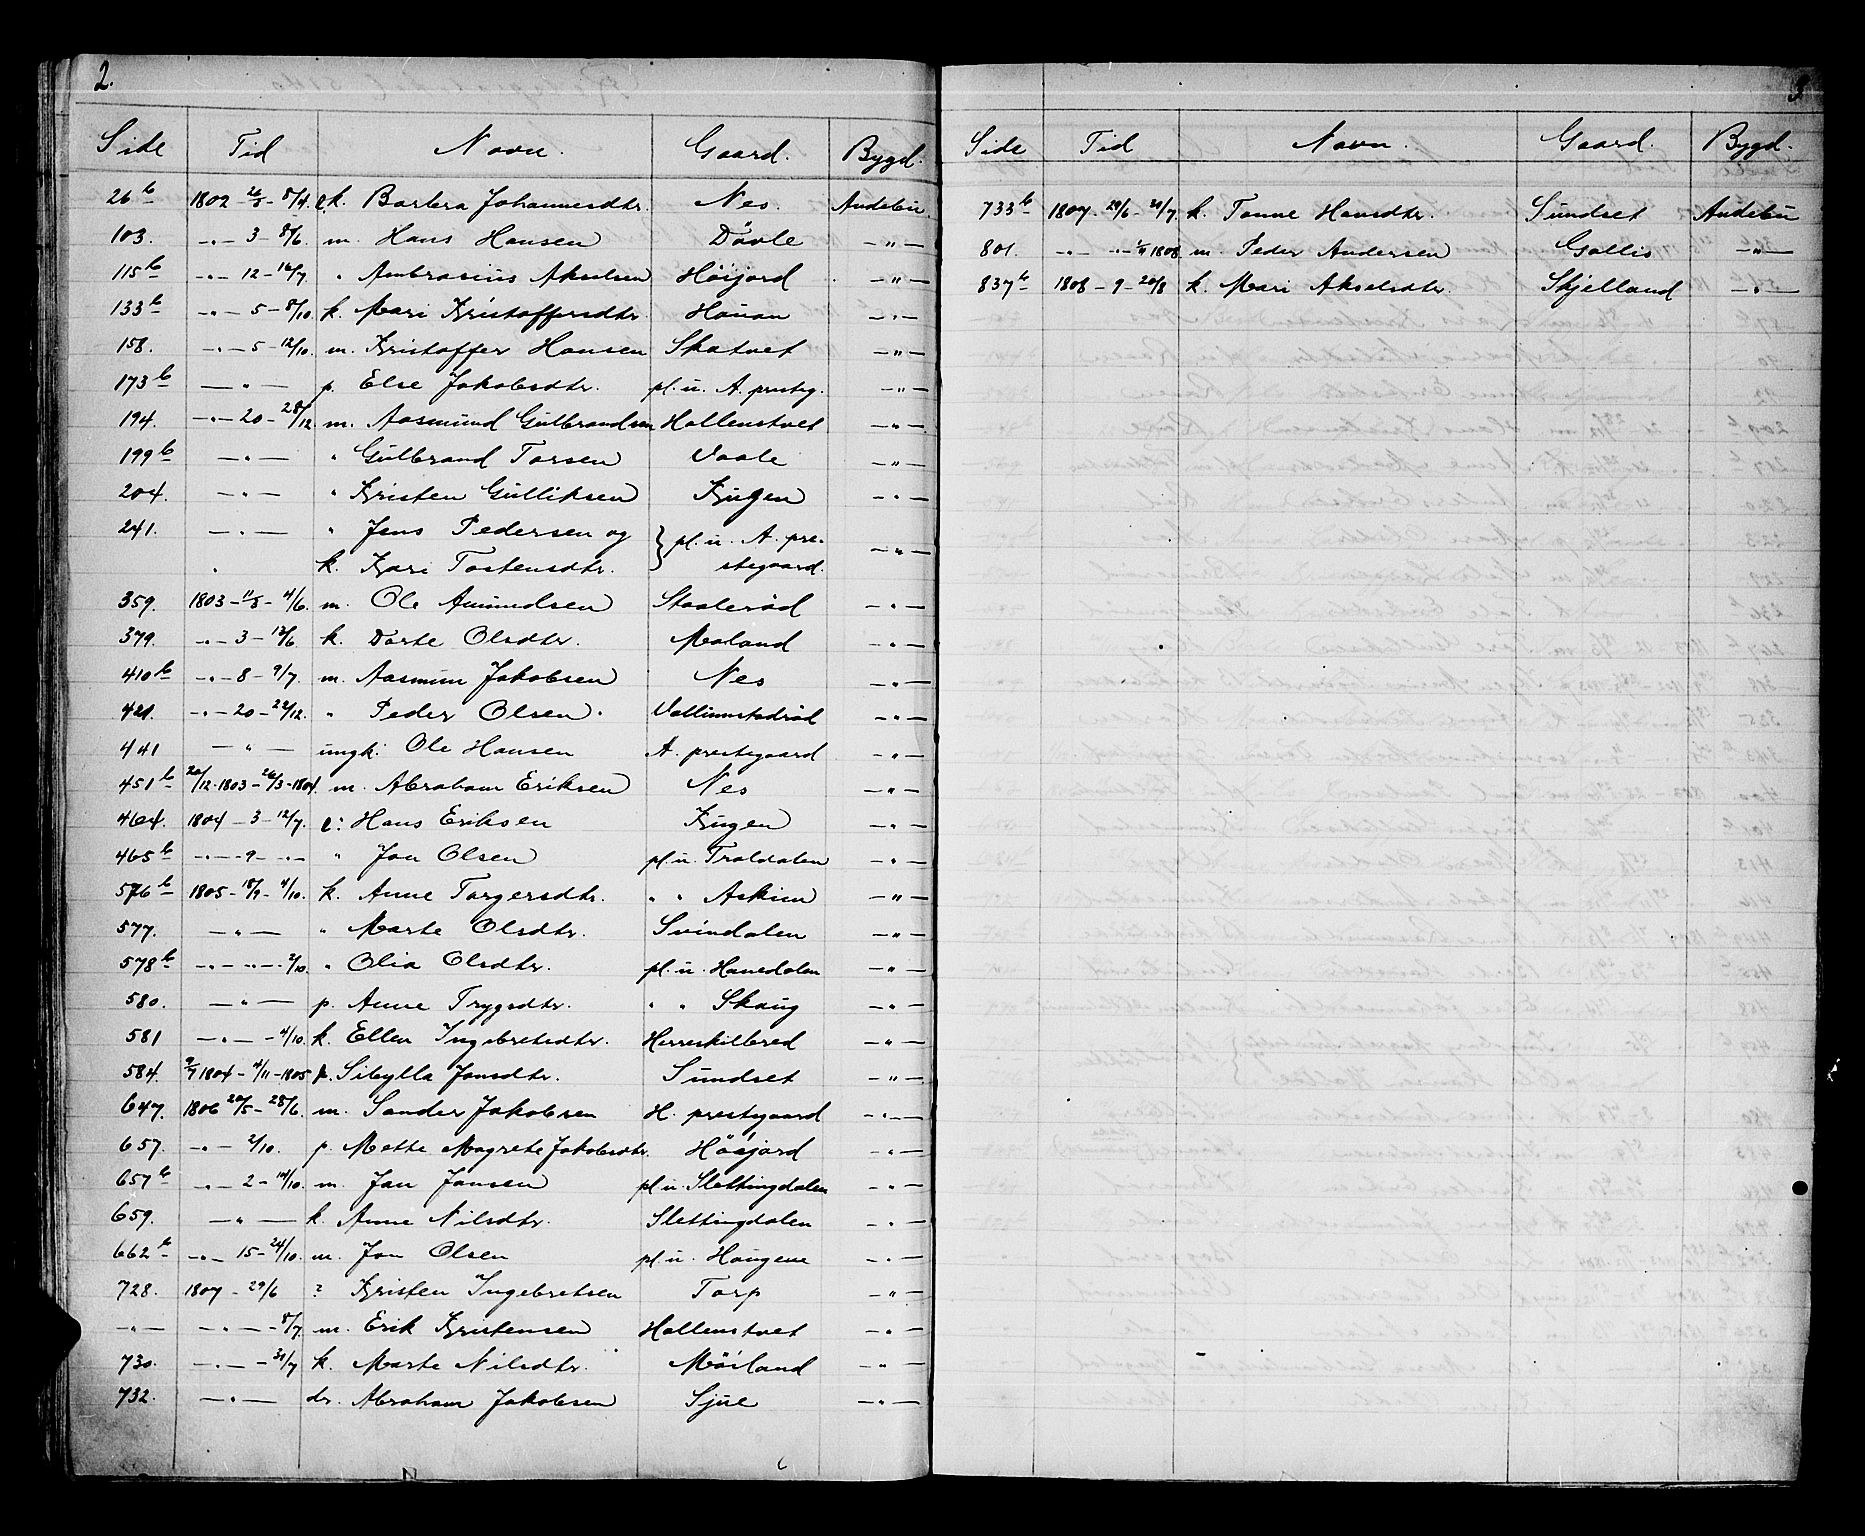 2.
Side Tid Navn. Gaard. Bygd.
26b 1802 - 26/3 - 8/4. e.k. Barbra Johannesdtr. Nes. Andebu.
103. -"- 3 - 8/6. m. Hans Hansen Dövle -"-
115b -"- 12 - 16/7 " Ambrosius Akselsen Höijord -"-
133b -"- 5 - 8/10. k. Mari Kristoffersdtr. Hauan -"-
158. -"- 5 - 12/10. m. Kristoffer Hansen Skatvet -"-
173b -"- p. Else Jakobsdtr. pl. u. A. presteg. -"-
194. -"- 20 - 28/12. m. Aasmund Gulbrandsen Hallenstvet -"-
199b -"- " Gulbrand Torsen Vaale -"-
204. -"- " Kristen Gulliksen Kugen -"-
241. -"- " Jens Pedersen og } pl. u. A. pre- -"-
k. Kari Tostensdtr. stegaard.
359. 1803 - 11/3 - 4/6. m. Ole Amundsen Staalerød -"-
379. -"- 3 - 13/6 k. Dorte Olsdtr. Maland -"-
410b -"- 8 - 9/7. m. Aasmun Jakobsen Nes -"-
421. -"- 20 - 22/12. " Peder Olsen. -"-
441 -"- ungk. Ole Hansen A. prestegaard -"-
451b 20/12-1803 - 26/3 - 1804. m. Abraham Eriksen Nes -"-
464. 1804 - 3 - 12/7. e: Hans Eriksen Kugen -"-
465b -"- 9 - " - " Jon Olsen pl. u. Troldalen -"-
576b 1805 - 18/9 - 4/10. k. Anne Torgersdtr. " " Askim -"-
577. -"- " Marte Olsdtr. Svindalen -"-
578b -"- " - 2/10. " Olia Olsdtr. pl. u. Hanedalen -"-
580. -"- p. Anne Trygsdtr. " " Skaug -"-
581 -"- - 4/10. k. Ellen Ingebretsdtr. Herreskilbred -"-
584. 9/7 1804 - 4/11 - 1805 p. Sibylla Jonsdtr. Sundset -"-
647. 1806 20/5 - 28/6. m. Sander Jakobsen H. prestegaard -"-
657. -"- 2/10. p. Mette Magrete Jakobsdtr. Höijord -"-
657b -"- 2 - 14/10. m. Jan Jansen pl. u. Slettingdalen -"-
659. -"- k. Anne Nilsdtr. Slettingdalen -"-
662b -"- 15 - 24/10. m. Jon Olsen pl. u. Haugene -"-
728. 1807 - 29/6 ? Kristen Ingebretsen Torp -"-
-"- -"- - 8/7. m. Erik Kristensen Hallenstvet -"-
730. -"- - 31/7 k. Marte Nilsdtr. Möiland -"-
732. -"- dr. Abraham Jakobsen Sjue -"-
3
Side Tid Navn. Gaard. Bygd.
733b 1807. 29/6 - 31/7. k. Tonne Hansdtr. Sundset Andebu
801. -"- 1808 m. Peder Andersen Gallis -"-
837b 1808 - 9 - 20/8 k. Mari Akselsdtr. Skjelland -"-